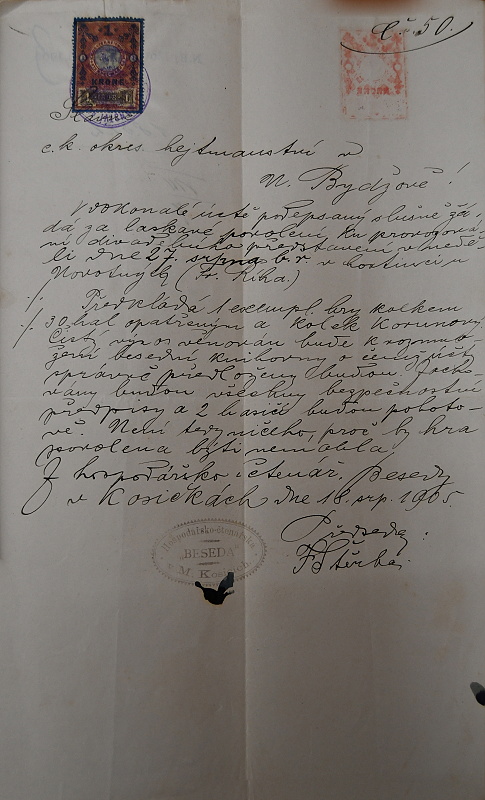 Č. 50.
1
KRONE
Slavné
c. k. okres. hejtmanství v
N. Bydžově!
V dokonalé úctě podepsaný slušně žá-
dá za laskavé povolení, ku provozová-
ní divadelního představení v neděli
dne 27. srpna b. r. v hostinci u
Novotných (Fr. Říha.)
Předkládá 1 exempl. hry kolkem
30 hal opatřeným a kolek Korunový.
Čistý výnos věnován bude k rozmno-
žení besední knihovny o čemž účty
správně předloženy budou. Zacho-
vány budou všechny bezpečnostní
předpisy a 2 hasiči budou pohoto-
vě. Není tedy ničeho, proč by hra
povolena býti nemohla!
Z hospodářsko čtenář. Besedy
v Kosičkách, dne 18. srp. 1905.
Předseda:
F. Štěrba
Hospodářsko-čtenářská
"BESEDA"
v M. Kosičkách